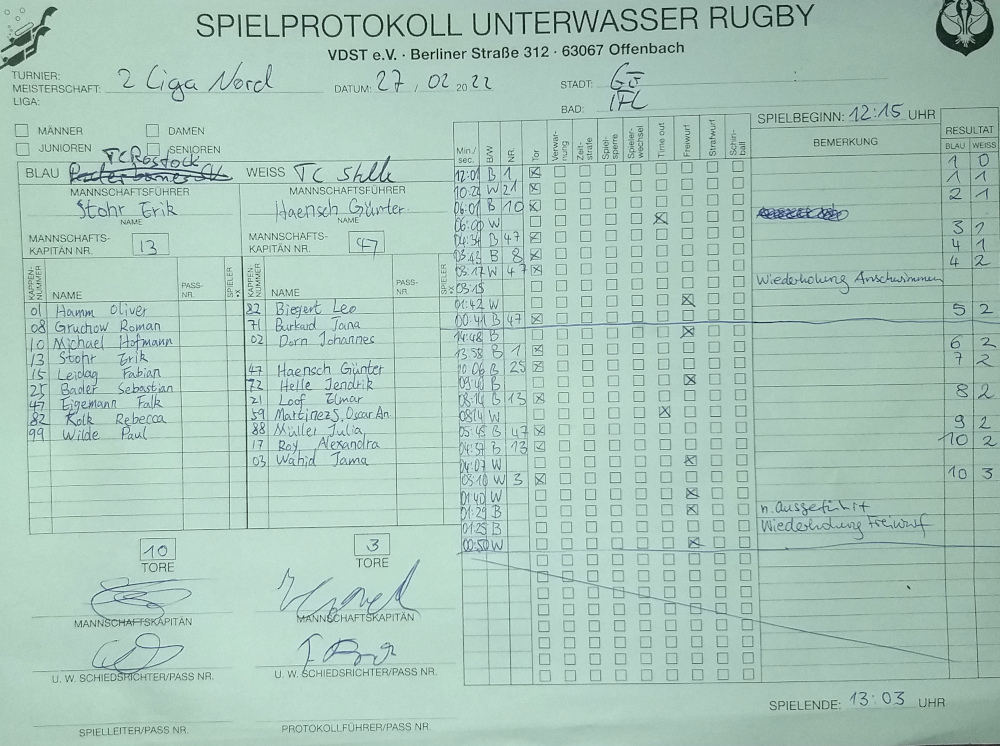 SPIELPROTOKOLL UNTERWASSER RUGBY
VDST e.V. · Berliner Straße 312 · 63067 Offenbach
TURNIER:
MEISTERSCHAFT: 2 Liga Nord
LIGA:
DATUM: 27 / 02 2022
STADT: GÖ
BAD:
MÄNNER
DAMEN
JUNIOREN
SENIOREN
SPIELBEGINN: 12:15 UHR
TC Rostock
BLAU
WEISS TC
MANNSCHAFTSFÜHRER
Stohr Erik
NAME
MANNSCHAFTSFÜHRER
Haensch Günter
NAME
MANNSCHAFTS-
KAPITÄN NR. 13
MANNSCHAFTS-
KAPITÄN NR. 47
KAPPEN-NUMMER NAME PASS-NR. SPIELER
01 Hamm Oliver
08 Gruchow Roman
10 Michael Hofmann
13 Stohr Erik
15 Leidag Fabian
25 Bader Sebastian
47 Eigemann Falk
82 Kolk Rebecca
99 Wilde Paul
KAPPEN-NUMMER NAME PASS-NR. SPIELER
82 Biegert Leo
71 Burkard Jana
02 Dorn Johannes
47 Haensch Günter
72 Helle Jendrik
21 Loof Elmar
59 Martinez S, Oscar An.
88 Müller Julia
17 Roy Alexandra
03 Wahid Jama
Min/sec. B/W NR. Tor Verwarnung Zeit-strafe Spiel-sperre Spieler-wechsel Time out Freiwurf Strafwurf Schin-ball BEMERKUNG RESULTAT BLAU WEISS
12:01 B 1 ☒ 1 0
10:22 W 21 ☒ 1 1
06:01 B 10 ☒ 2 1
06:00 W ☒
04:34 B 47 ☒ 3 1
03:43 B 8 ☒ 4 1
03:17 W 47 ☒ 4 2
03:15 Wiederholung Anschwimmen
01:42 W ☒
00:41 B 47 ☒ 5 2
14:48 B ☒
13:58 B 1 ☒ 6 2
10:06 B 25 ☒ 7 2
09:40 B ☒
08:14 B 13 ☒ 8 2
08:14 W ☒
05:45 B 47 ☒ 9 2
04:57 B 13 ☒ 10 2
04:07 W ☒
03:10 W 3 ☒ 10 3
01:40 W ☒
01:29 B ☒ n. ausgeführt
01:25 B Wiederholung Freiwurf
00:50 W ☒
10
TORE
3
TORE
MANNSCHAFTSKAPITÄN
MANNSCHAFTSKAPITÄN
U. W. SCHIEDSRICHTER/PASS NR.
U. W. SCHIEDSRICHTER/PASS NR.
SPIELLEITER/PASS NR.
PROTOKOLLFÜHRER/PASS NR.
SPIELENDE: 13:03 UHR